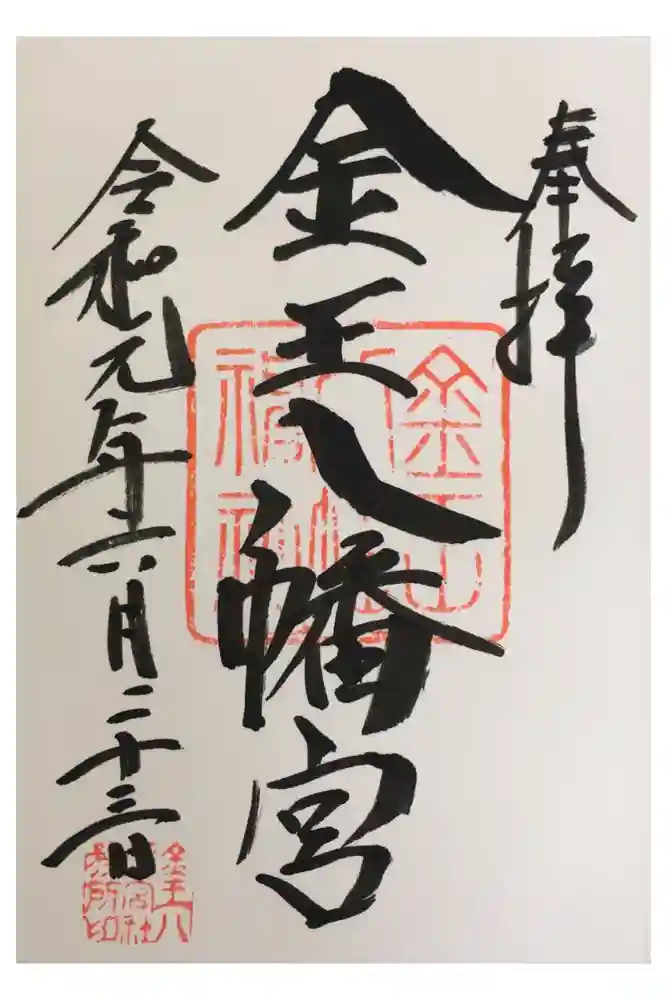 奉拝
金王八幡宮
令和元年六月二十三日
金王八
幡宮社
務所印